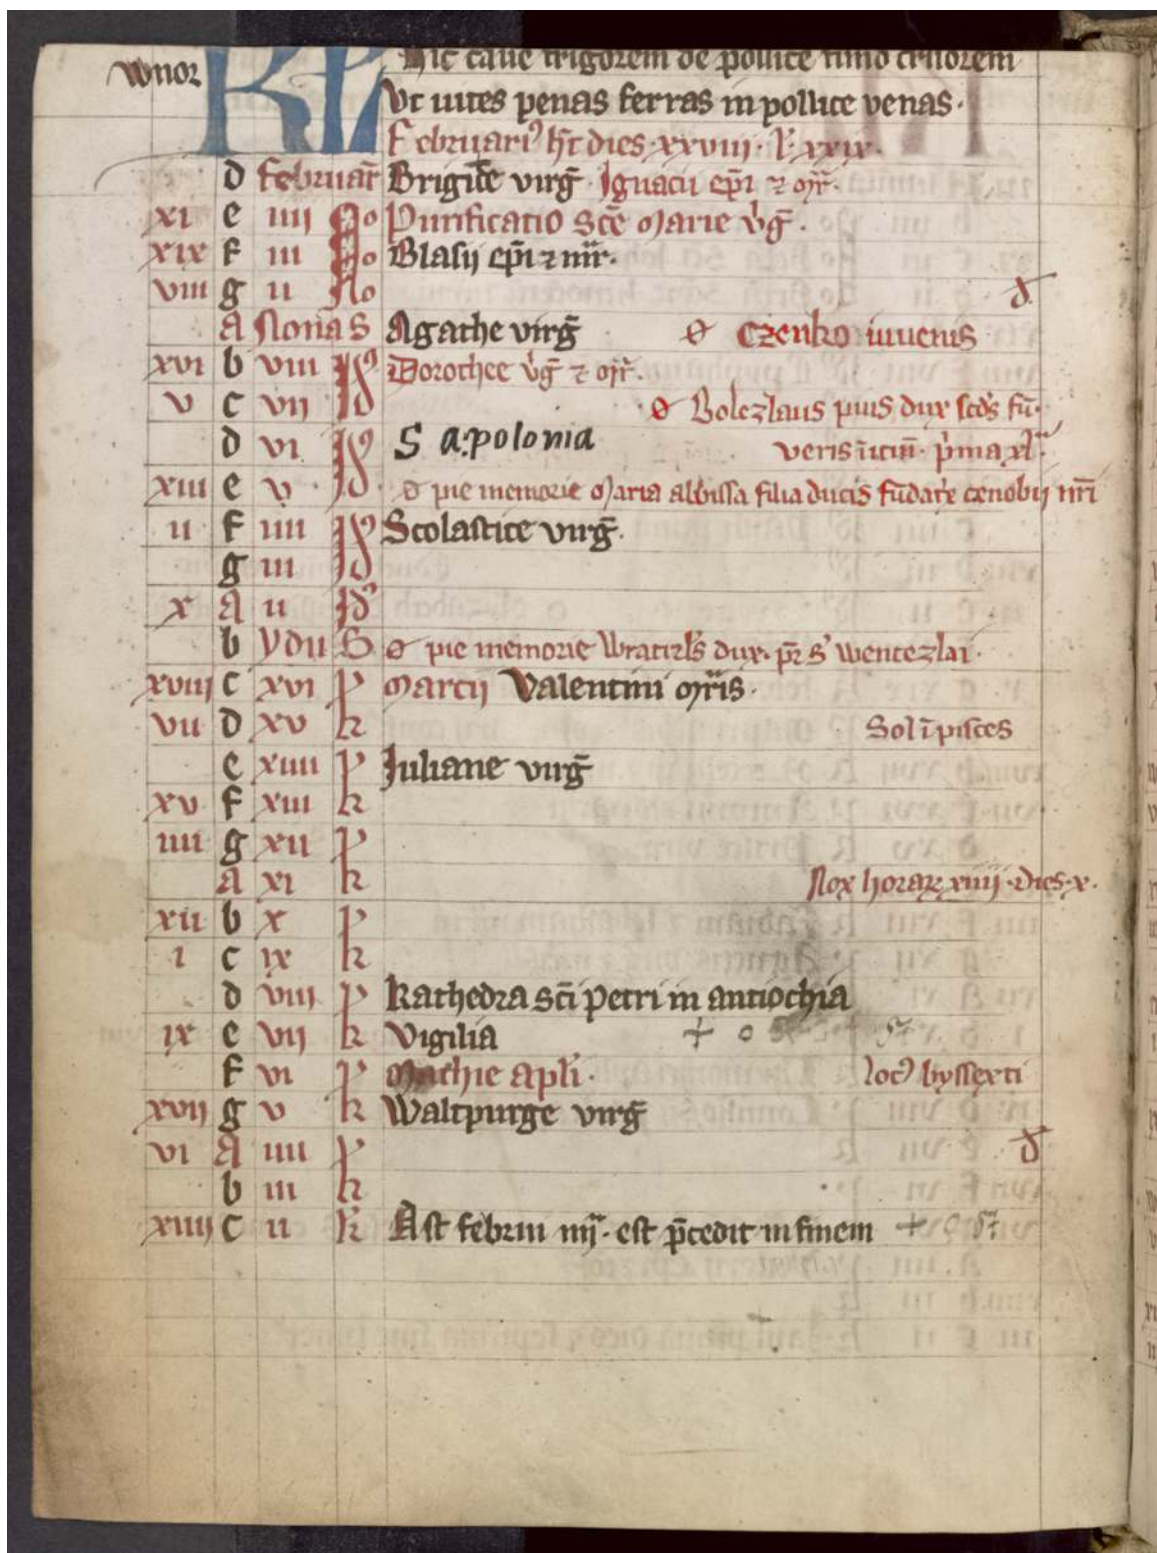 wnor KL Hic caue frigorem de pollice
Vt uites penas ferras in pollice venas·
Februari⁹ ht̄ dies·xxviii· l̓·xxix·
d februar̄ Brigide virḡ· Ignacii ep̄i ⁊ mr̄·
xi e iiii No Purificatio Scē Marie v̓ḡ·
xix f iii No Blasij ep̄i ⁊ mr̄·
viii g ii No
a Nonas Agathe virḡ czenko iuuenis
xvi b viii Id⁹ Dorothee v̓ḡ ⁊ mr̄·
v c vii Id Bolezlaus pius dux scd̓s
d vi Id⁹ S apolonia p̓ma
xiii e v· Id· pie memorie Maria abbissa filia ducis fu̅dar̓e cenobij nr̄i
ii f iiii Id⁹ Scolastice virḡ·
g iii Id
x a ii Id⁹
b ydus pie memorie wratizl̓s dux· pr̄ s̓ wentezlai·
xviii c xvi p Marcij Valentini Mr̄is·
vii d xv k Sol ī pisces
e xiiii p Iuliane virḡ
xv f xiii k
iiii g xii p
a xi k Nox horaꝝ xiiij·dies·x·
xii b x p
i c ix k
d viii p kathedra scī petri in antiochia
ix e vii k Vigilia +
f vi p Mathie apl̓i· loc⁹ byssexti
xvii g v k Waltpurge virḡ
vi a iiii p
b iii k
xiiii c ii k̓ Ast februi est p̄cedit in finem +